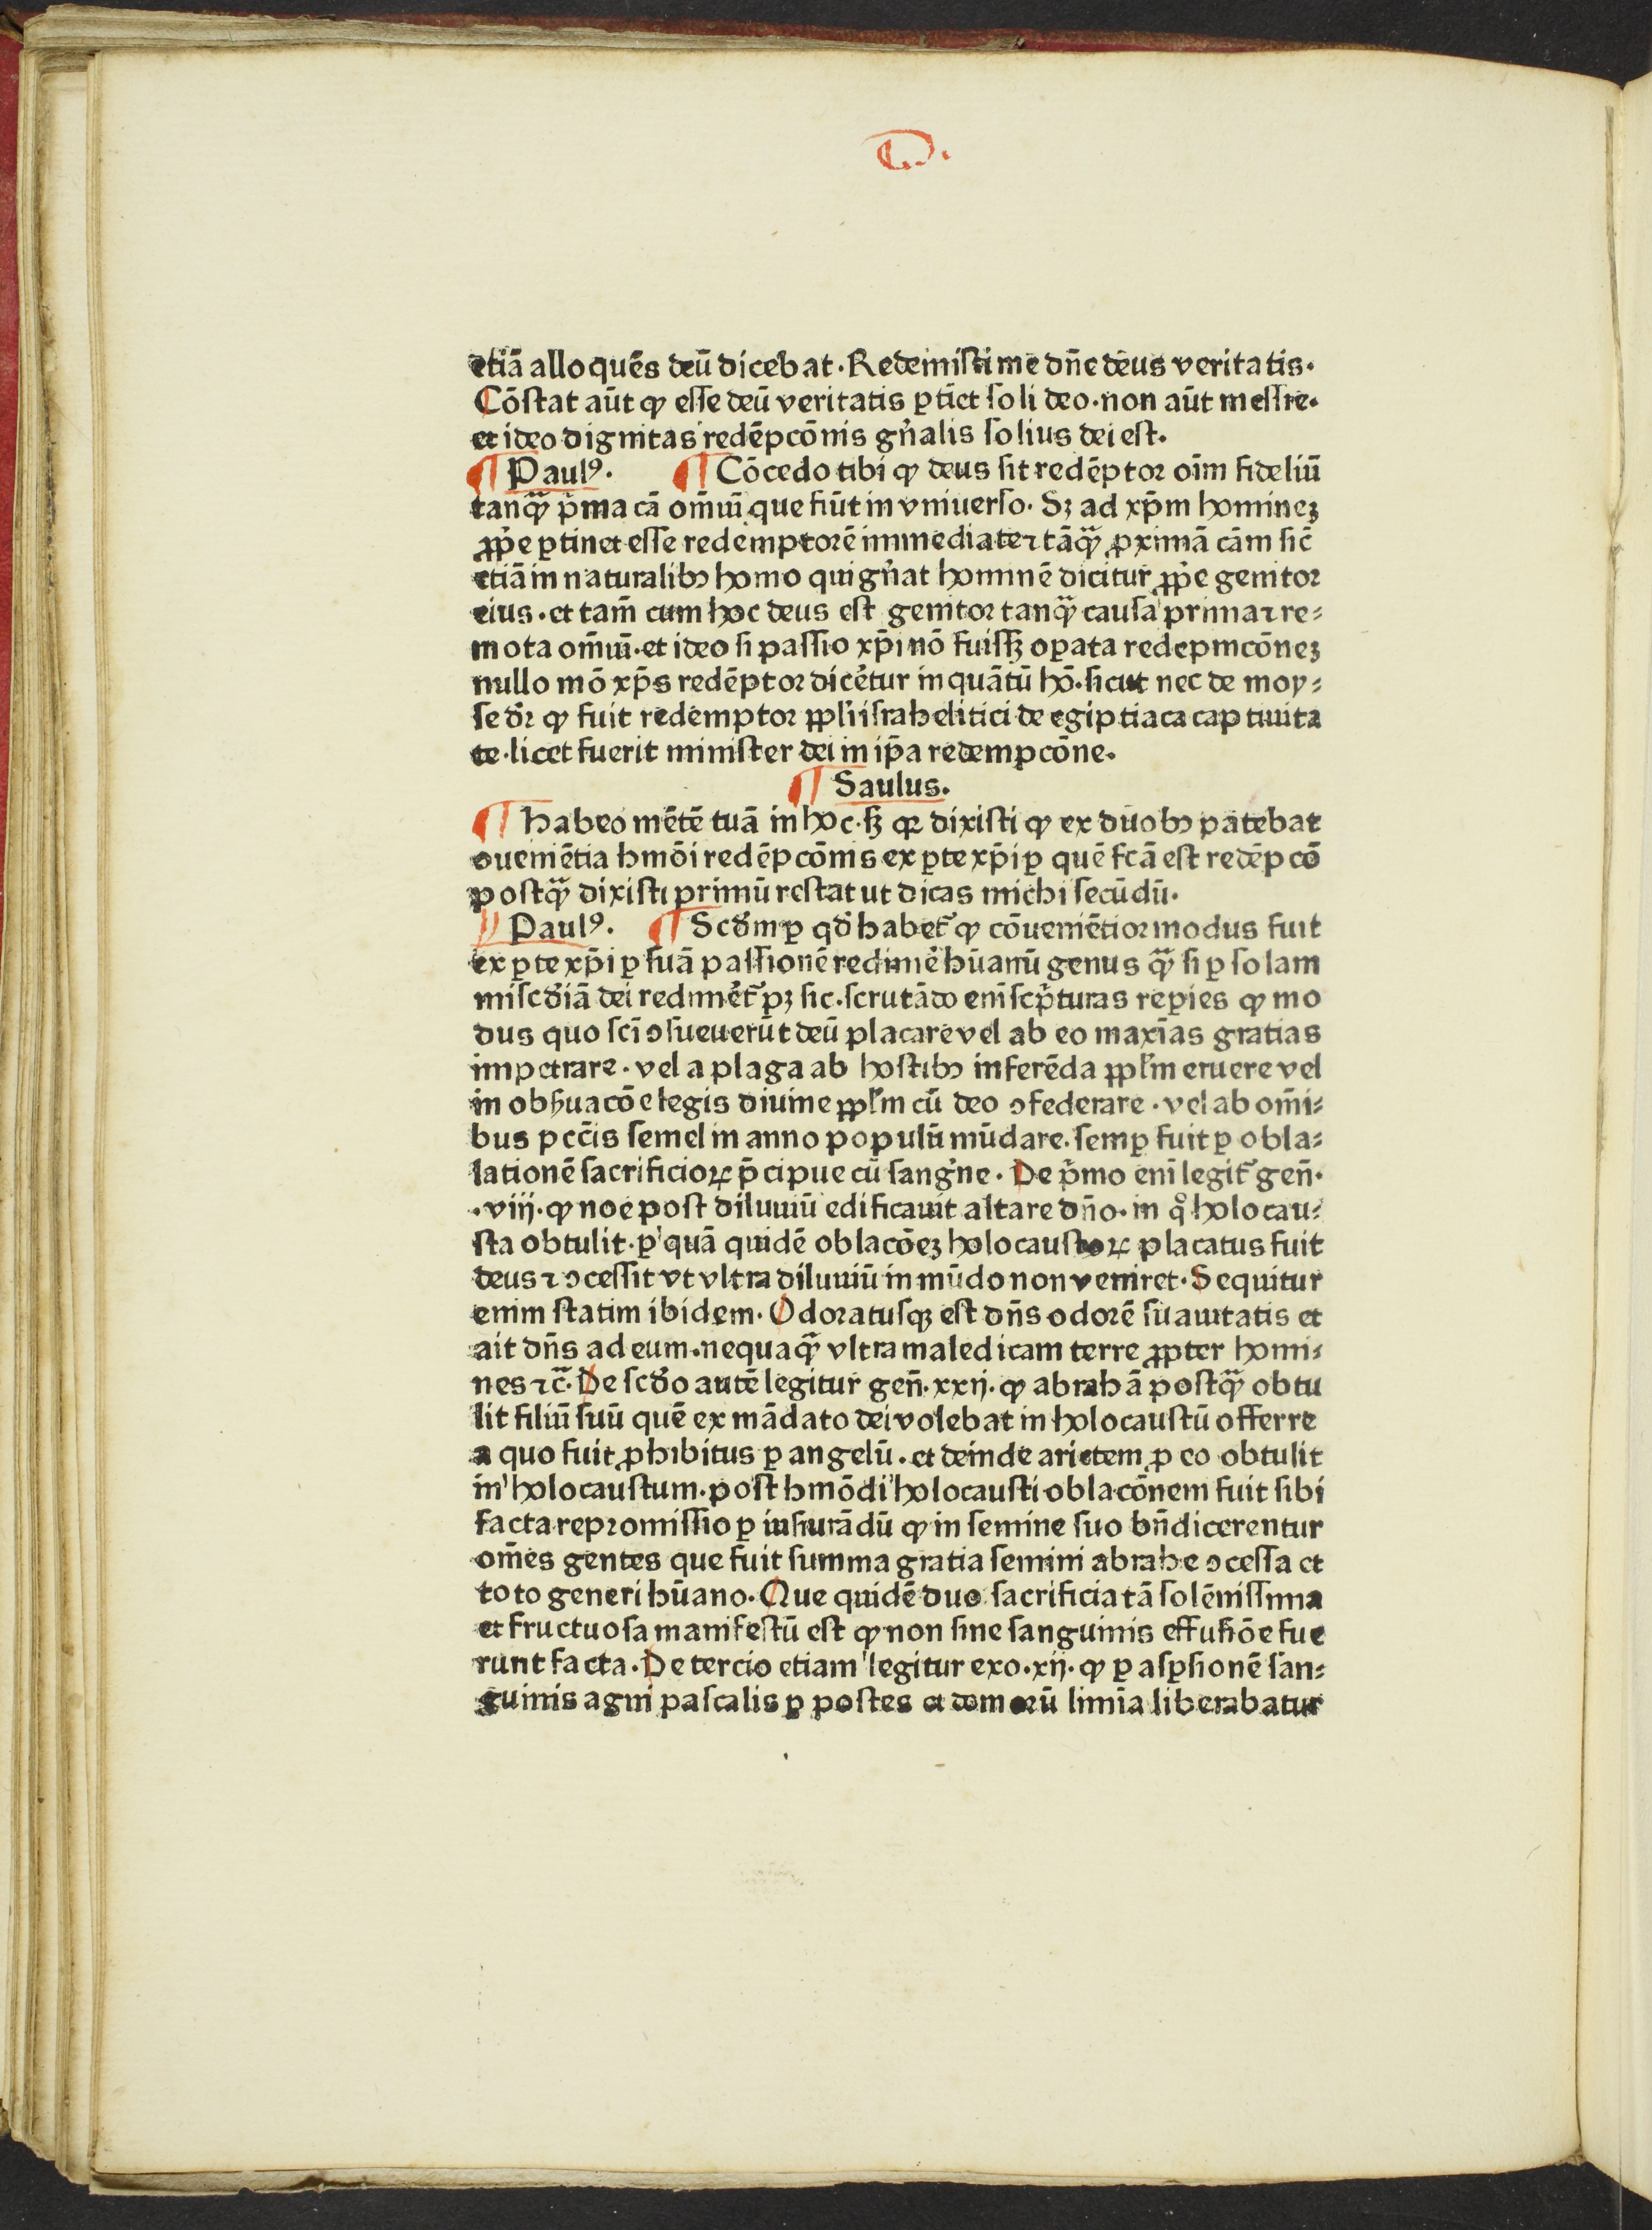 D.
etiā alloquēs deū dicebat. Redemisti me dn̄e deus veritatis.
Cōstat aūt ꝙ esse deū veritatis ꝑtīet soli deo. non aūt messie.
et ideo dignitas redēpcōnis gn̄alis solius dei est.
¶ Paulꝰ. ¶ Cōcedo tibi ꝙ deus sit redēptor oīm fideliū
tanqᷓ p̄ma cā om̄iū que fiūt in vniuerso. Sꝫ ad xp̄m homineꝫ
ꝓp̄e ꝑtinet esse redemptorē immediate ⁊ tāqᷓ ꝓximā cām sic̄
etiā in naturalibꝫ homo qui gn̄at hominē dicitur ꝓp̄e genitor
eius. et tam̄ cum hoc deus est genitor tanqᷓ causa prima ⁊ re⸗
mota om̄iū. et ideo si passio xp̄i nō fuissꝫ oꝑata redepmcōneꝫ
nullo mō xp̄s redēptor dicet̄ur inquātū hō. sicut nec de moy⸗
se dr̄ ꝙ fuit redemptor ppl̄i israhelitici de egiptiaca captiuita
te. licet fuerit minister dei in ip̄a redempcōne.
¶ Saulus.
¶ Habeo mētē tuā in hoc. sꝫ qꝛ dixisti ꝙ ex duobꝫ patebat
ꝯueniētia hmōi redēpcōnis ex ꝑte xp̄i ꝑ quē fcā est redēpcō
postqᷓ dixisti primū restat ut dicas michi secūdū.
¶ Paulꝰ. ¶ Scd̄m ꝑ qd̄ habet᷑ ꝙ cōueniētior modus fuit
ex ꝑte xp̄i ꝑ suā passionē redimē hūanū genus qᷓ si ꝑ solam
miscd̄iā dei redimēt᷑ pꝫ sic. scrutādo eni scp̄turas reꝑies ꝙ mo
dus quo scī ꝯsueuerūt deū placare vel ab eo maxīas gratias
impetrare. vel a plaga ab hostibꝫ inferēda ppl̄m eruere vel
in obẜuacōe legis diuine ppl̄m cū deo ꝯfederare. vel ab om̄i⸗
bus pcc̄is semel in anno populū mūdare. semꝑ fuit ꝑ obla⸗
lationē sacrificioꝝ p̄cipue cū sangīne. De p̄mo enī legit᷑ gen̄.
.viij. ꝙ noe post diluuiū edificauit altare dn̄o. in qͦ holocau⸗
sta obtulit. ꝑ quā quidē oblacōeꝫ holocaustoꝝ placatus fuit
deus ⁊ ꝯcessit vt vltra diluuiū in mūdo non veniret. Sequitur
enim statim ibidem. Odoratusqꝫ est dn̄s odorē suauitatis et
ait dn̄s ad eum. nequaqᷓ vltra maledicam terre ꝓpter homi⸗
nes ⁊c̄. De scd̄o autē legitur gen̄. xxij. ꝙ abrahā postqᷓ obtu
lit filiū suū quē ex mādato dei volebat in holocaustū offerre
a quo fuit ꝓhibitus ꝑ angelū. et deinde arietem ꝓ eo obtulit
in holocaustum. post hmōdi holocausti oblacōnem fuit sibi
facta repromissio ꝑ iusiurādū ꝙ in semine suo bn̄dicerentur
om̄es gentes que fuit summa gratia semini abrahe ꝯcessa et
toto generi hūano. Que quidē duo sacrificia tā solēnissima
et fructuosa manifestū est ꝙ non sine sanguinis effusiōe fue
runt facta. De tercio etiam legitur exo. xij. ꝙ ꝑ asꝑsionē san⸗
guinis agni pascalis ꝑ postes et domorū limīa liberabatur